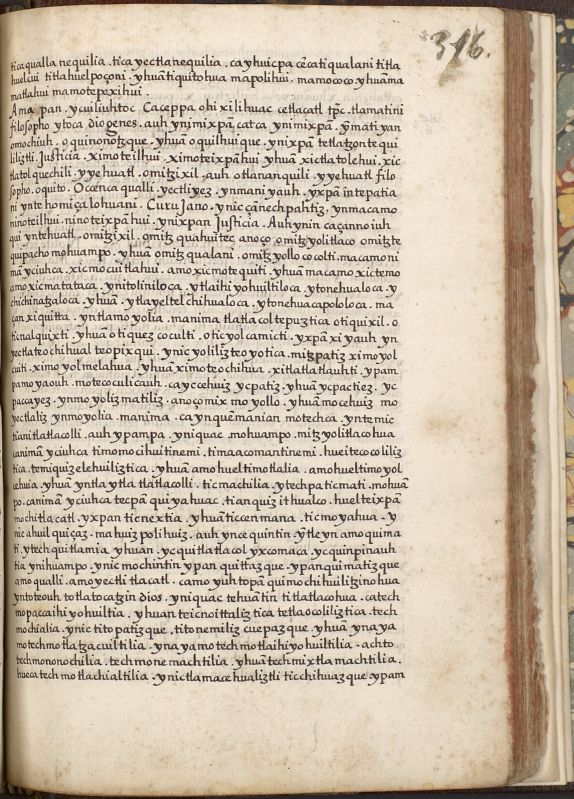 316.
tica qualla nequilia . tica yectlanequilia . ca yhuicpa cẽcati qualani titla
huelcui titlahuelpoçoni . yhuã tiquitohua mapolihui . mamococo yhuãma
matlahui mamotepexihui .
Ama pan . ycuiliuhtoc Caceppa ohixilihuac cetlacatl tp̃c . tlamatini
filosopho ytoca diogenes . auh ynimixpã catca ynimixpã . ỹmatiyan
omochiuh . o quinonotzque . yhuã o quilhui que . ynixpã tetlatzontequi
liliztli Justicia . ximoteilhui . ximoteixpãhui yhuã xictlatolehui . xic
tlatolquechili . yyehuatl . omitzixil . auh otlananquili . yyehuatl filo
sopho . oquito . Occẽnca qualli . yectliyez . ynmani yauh . yxpã intepatia
ni ynte homiçalohuani . Curujano . ynic çãnechpahtiz . ynmacamo
ninoteilhui . ninoteixpãhui . ynixpan Justicia . Auh ynin ca çanno iuh
qui yntehuatl . omitzixil . omitz quahuitec anoço . omitz yolitlaco omitzte
quipacho mohuampo . yhuã omitz qualani . omitz yollo cocolti . macamo ni
mã yciuhca . xicmocuitlahui . amo xicmotequiti . yhuã macamo xictemo
amo xicmatataca . ynitoliniloca . ytlaihiyohuiltiloca . ytonehualoca . y
chichinatzaloca . yhuã . ytlayeltelchihualoca . ytonehuacapololoca . ma
çan xiquitta . yntlamo yolia . manima tlatlacoltepuztica otiquixil . o
ticnalquixti . yhuã otiquezcoculti . oticyolcamicti . yxpã xi yauh yn
yectlateochihual teopixqui . ynic yolilizteoyotica . mitzpatiz ximoyol
cuiti . ximo yolmelahua . yhuã ximoteochihua . xitlatlatlauhti . ypam
pamoyaouh . motecoculicauh . caycehuiz ycpatiz . yhuã ycpactiez . yc
paccayez . ynmo yoliz matiliz . anoço mix mo yollo . yhuãmocehuiz mo
yectlaliz ynmoyolia . manima . cayn quẽmanian motechca . yntemic
tiani tlatlacolli . auh ypampa . yniquac mohuampo . mitzyolitlacohua
canimã yciuhca timomocihuitinemi . timaacomantinemi . huei tecocoliliz
tica . temiquizelehuiliztica . yhuã amo huel timotlalia . amohueltimoyol
cehuia . yhuã yntla ytla tlatlacolli . ticmachilia . ytechpa ticmati . mohuã
po . canimã yciuhca tecpã qui yahuac . tianquizithualco . huelteixpã
mochitlacatl . yxpan ticnextia . yhuãticcenmana . ticmoyahua . y
nic ahuilquiçaz . mahuizpolihuiz . auh ynce quintin . ỹtleyn amoquima
ti . ytech quitlamia . yhuan . ycquitlatlacolyxcomaca . ycquinpinauh
tia ynihuampo . ynic mochintin ypan quittazque . ypanquimatizque
amo qualli . amo yectli tlacatl . camo yuhtopã quimochihuilitzinohua
ynto teouh totlatocatzin dios . yniquac tehuãtin titlatlacohua . catech
mopaccaihiyohuiltia . yhuan teicnoittaliztica tetlaocoliliztica . tech
mochialia . ynic titopatizque . titonemilizcuepazque . yhuã ynaya
motechmotlatzacuiltilia . ynayamo techmotlaihiyohuiltilia . achto
techmononochilia . techmonemachtilia . yhuã techmixtlamachtilia .
hueca techmotlachialtilia . ynictlamacehualiztli ticchihuazque ypam